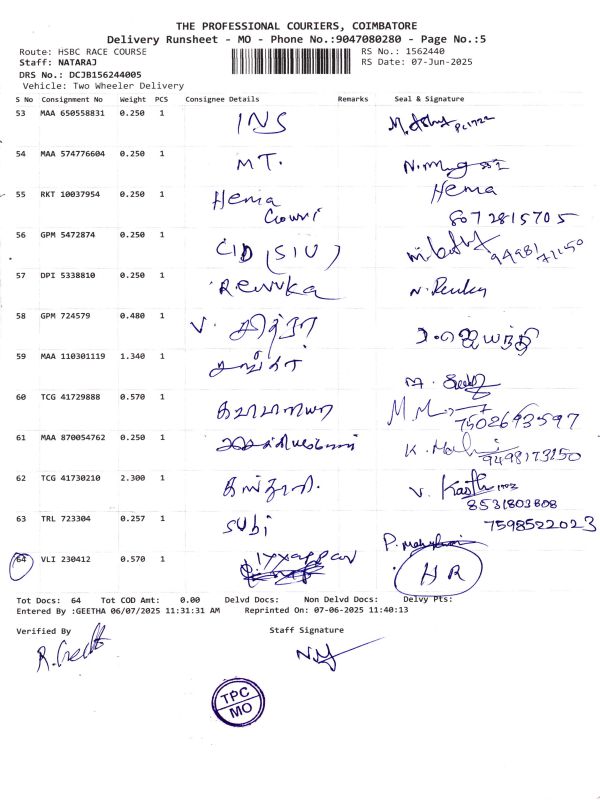 THE PROFESSIONAL COURIERS, COIMBATORE
Delivery Runsheet - MO - Phone No.:9047080280 - Page No.:5
Route: HSBC RACE COURSE RS No.: 1562440
Staff: NATARAJ RS Date: 07-Jun-2025
DRS No.: DCJB156244005
Vehicle: Two Wheeler Delivery
S No Consignment No Weight PCS Consignee Details Remarks Seal & Signature
53 MAA 650558831 0.250 1 INS
54 MAA 574776604 0.250 1 MT.
55 RKT 10037954 0.250 1 Hema Hema
Gowri 8072815705
56 GPM 5472874 0.250 1 CID (SIU)
57 DPI 5338810 0.250 1 Renuka N. Renuka
58 GPM 724579 0.480 1 V. சித்ரா உ. ஜெயந்தி
59 MAA 110301119 1.340 1 சங்கர்
60 TCG 41729888 0.570 1
61 MAA 870054762 0.250 1
62 TCG 41730210 2.300 1 V.
8531803608
63 TRL 723304 0.257 1 Subi 7598522023
64 VLI 230412 0.570 1 Iyyappan HR
Tot Docs: 64 Tot COD Amt: 0.00 Delvd Docs: Non Delvd Docs: Delvy Pts:
Entered By :GEETHA 06/07/2025 11:31:31 AM Reprinted On: 07-06-2025 11:40:13
Verified By Staff Signature
TPC
MO